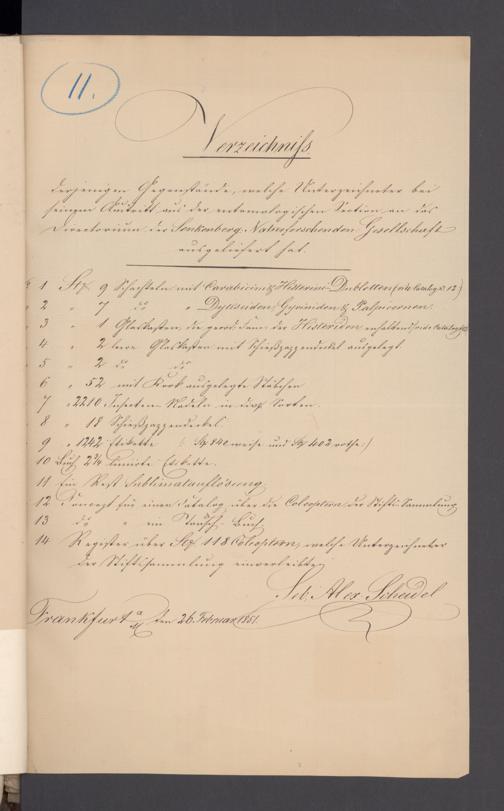 11.
Verzeichniſs
derjenigen Gegenstände, welche Unterzeichneter bei
seinem Austritt aus der entomologischen Section an das
Directorium der Senkenberg. Naturforschenden Gesellschaft
ausgeliefert hat.
1 Stk 9 Schachteln mit Carabicinen & Histerinen Doubletten (vide Catalog No. 12)
2 " 7 do " Dytisciden, Gyriniden & Palpicornen.
3 " 1 Glaskasten, die Histeriden enthaltend
4 " 2 leere Glaskasten mit ausgelegt
5 " 2 do do
6 " 52 mit Kork ausgelegte Stäbchen
7 " 2210 Insecten-Nadeln in div. Sorten.
8 " 18
9 " 1242 Etikette (: Stk 840 weise und Stk 402 rothe :)
10 Buch 2¾ linirte Etikette.
11 Ein Rest Sublimatauflösung.
12 Concept für einen Catalog über die Coleoptern der Stifts-Sammlung
13 do " ein Tausch-Buch
14 Register über Stk 118 Coleoptern, welche Unterzeichneter
der Stiftssammlung einverleibte
Seb. Alex. Scheidel
Frankfurt a/M den 26. Februar 1851.